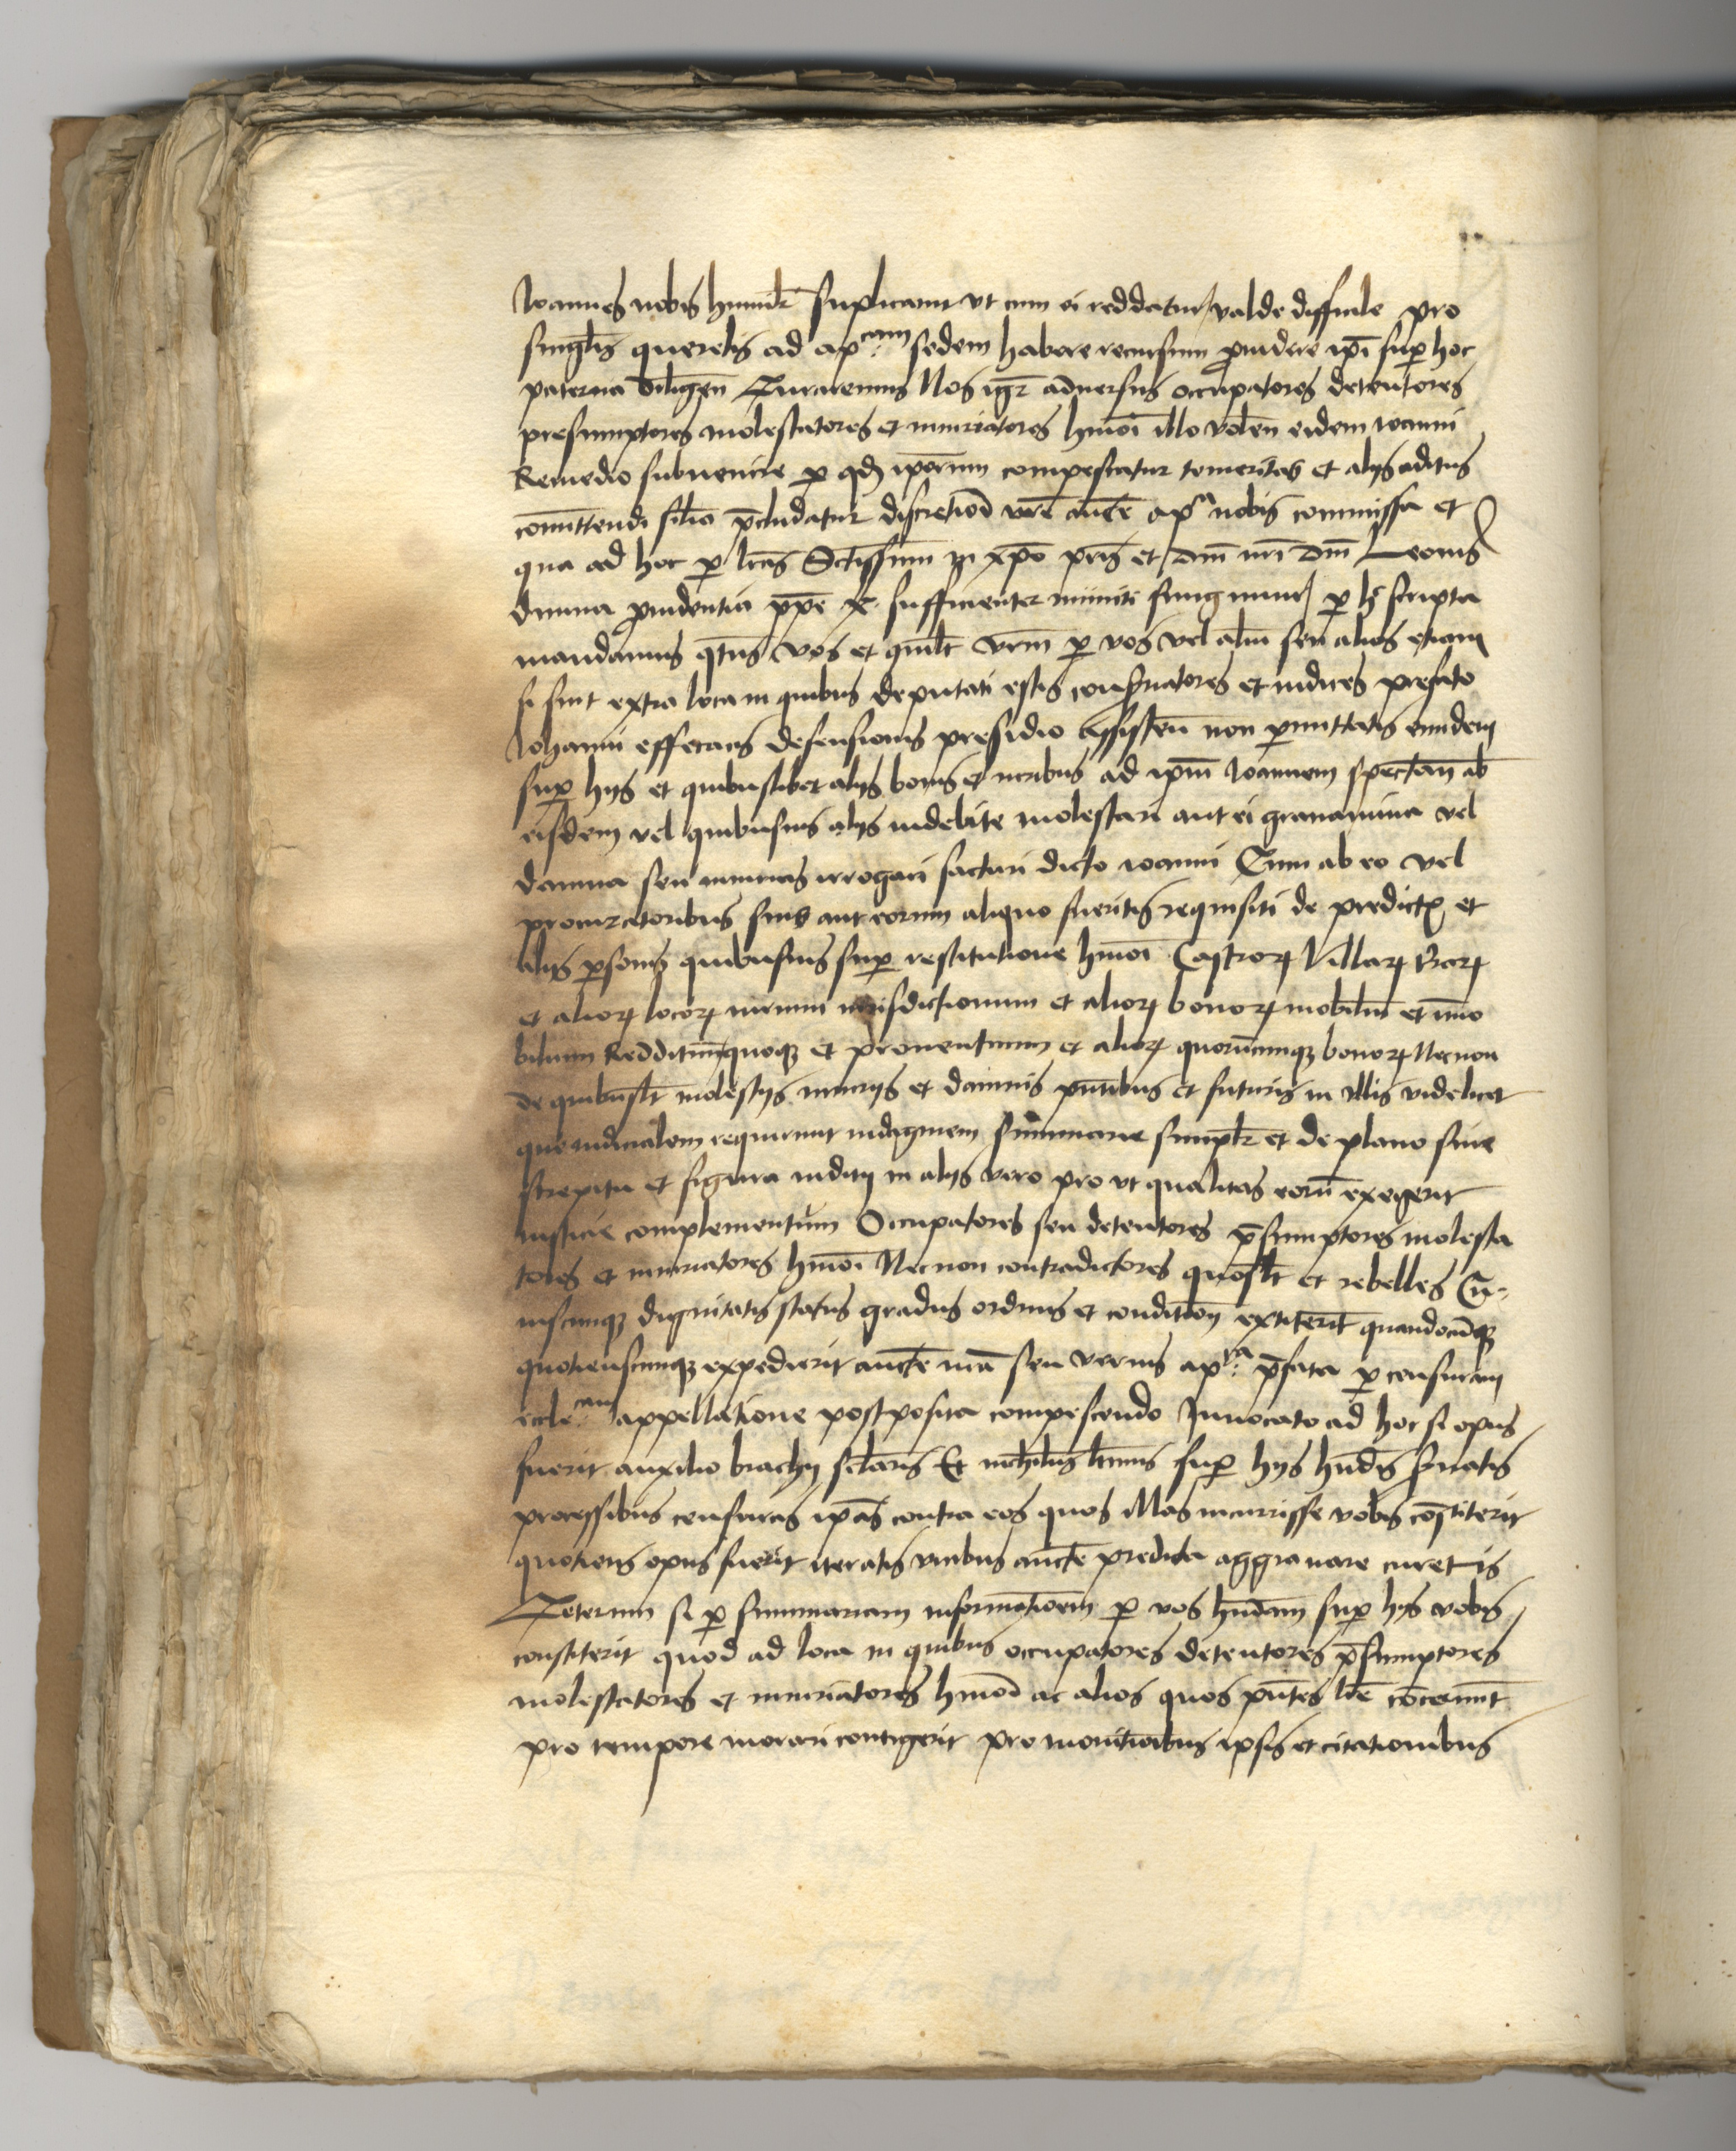 Ioannes nobis humilr suplicauit vt cum ei reddatur valde difficile pro
singlis querelis ad apcam sedem habere recursum prouidere ipi super hoc
paterna diligen Curaremus Nos igr aduersus occupatores detentores
presumptores molestatores et iniuriatores hmoi illo volen eidem ioanni
Remedio subuenire per qd iporum compescatur temeritas et alijs aditus
comittendi silia precludatur discretioni vre aucte apca nobis commissa et
qua ad hoc per lras Sctissimi in xpo pris et dni nri dni Leonis
diuina prouidentia ppe x. sufficienter muniti fungimur per hec scripta
mandamus qtus vos et quilt vrm per vos vel aliu seu alios etiam
si sint extra loca in quibus deputati estis conseruatores et iudices prefato
Iohanni efficacis defensionis presidio assisten non permittatis eumdem
super hijs et quibuslibet alijs bonis et iuribus ad ipm Ioannem spectan ab
eisdem vel quibusuis alijs indebite molestari aut ei grauamina vel
damna seu iniurias irrogari facturi dicto ioanni Cum ab eo vel
procuratoribus suis aut eorum aliquo fueritis requisiti de predictis et
alijs personis quibusuis super restitutione hmoi Castrorum Villarum terrarum
et aliorum locorum iurium iurisdictionum et aliorum bonorum mobiliu et immo
bilium Reddituum quoque et prouentuum et aliorum quorumcumque bonorum Necnon
de quibuslt molestijs iniurijs et damnis pntibus et futuris in illis videlicet
que iudicialem requirunt indaginem summarie simplr et de plano sine
strepitu et figura iuditij in alijs vero pro vt qualitas eoru exegerit
iusticie complementum Occupatores seu detentores presumptores molesta
tores et iniuriatores hmoi Necnon contradictores quoslt et rebelles Cu-
iuscumque dignitatis status gradus ordinis et condition extiterit quandocumque
quotienscumque expedierit aucte nra seu verius apca prefata per censuram
eccleam appellatione postposita compescendo Inuocato ad hoc si opus
fuerit auxilio brachij seclaris Et nichilus ltimis super hijs hndis seruatis
processibus censuras ipas contra eos quos illas incurrisse vobis costiterit
quotiens opus fuerit iteratis vicibus aucte predicta aggrauare curetis
Ceterum si per summariam informationem per vos hndam super hijs vobis
constiterit quod ad loca in quibus occupatores detentores presumptores
molestatores et iniuriatores hmoi ac alios quos pntes lre cocernunt
pro tempore morari contigerit pro monitionibus ipsis et citationibus